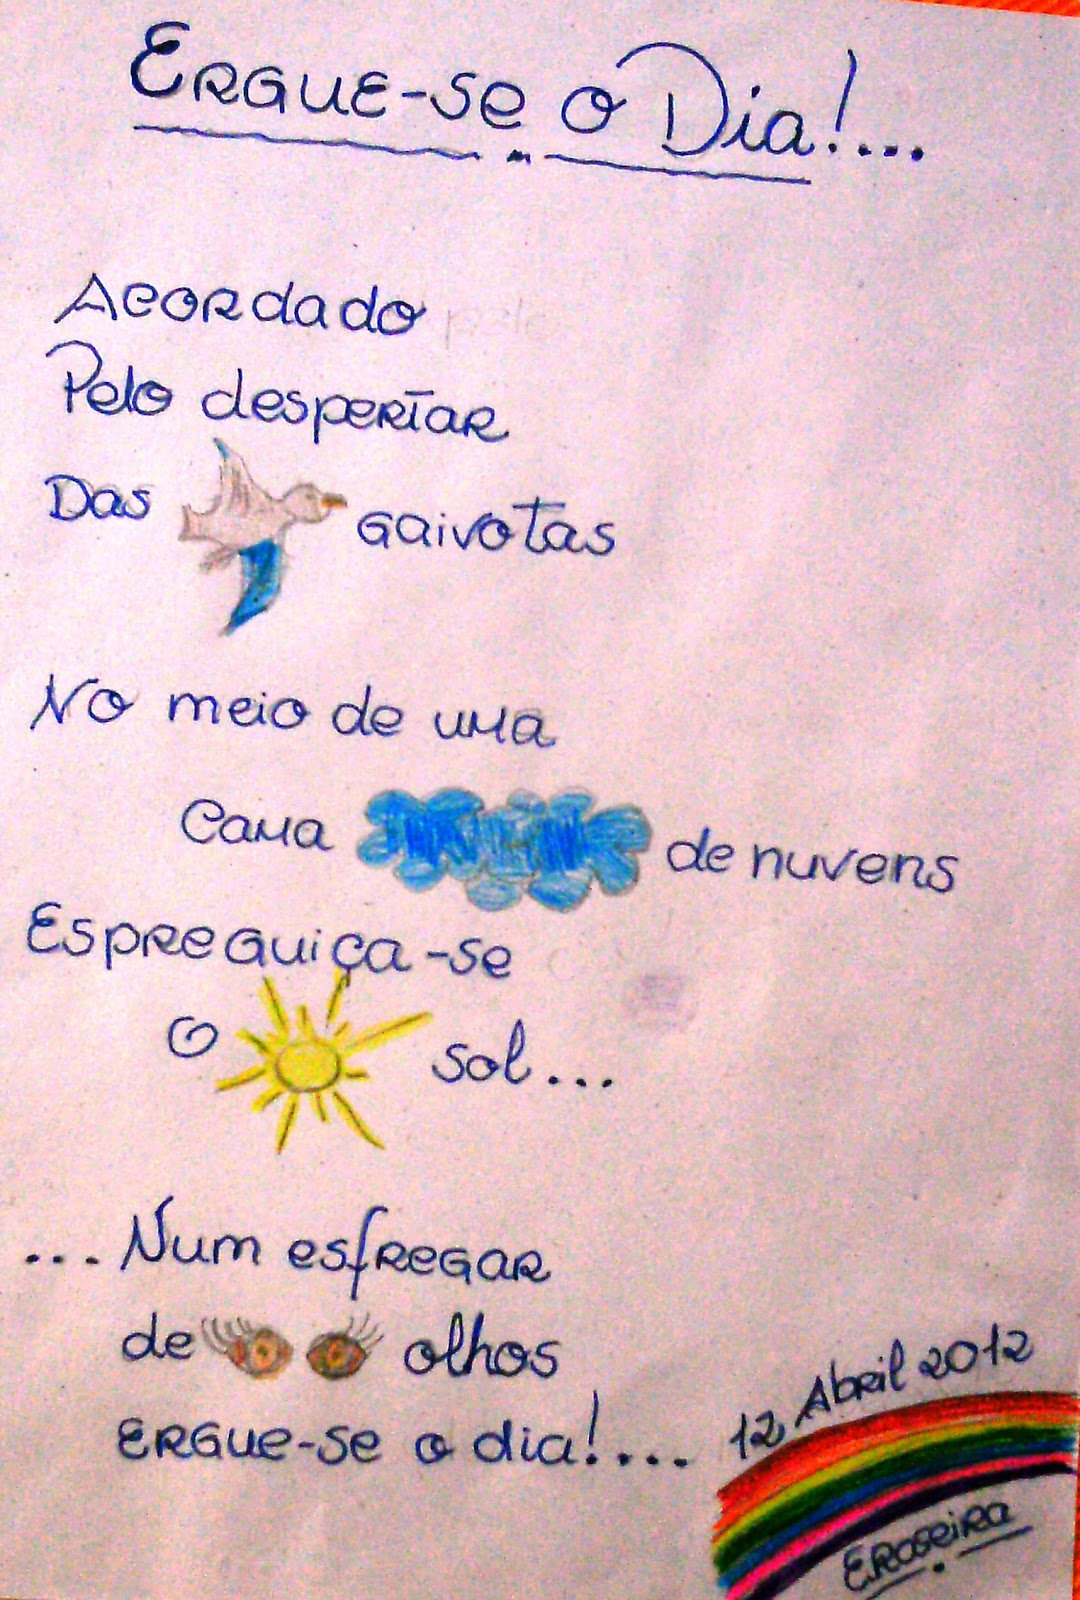 Ergue-se o Dia!...
Acordado
Pelo despertar
Das gaivotas
No meio de uma
Cama de nuvens
Espreguiça-se
O sol...
...Num esfregar
de olhos
Ergue-se o dia!....
12 Abril 2012